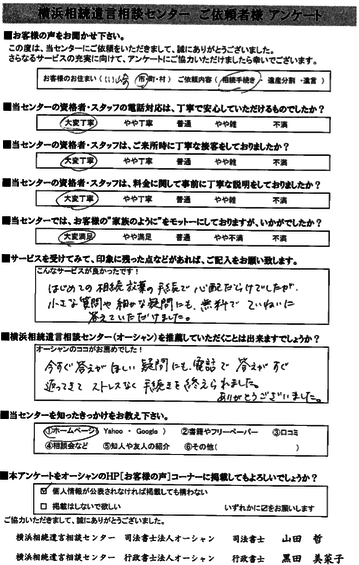 横浜相続遺言相談センター ご依頼者様 アンケート
■お客様の声をお聞かせ下さい。
この度は、当センターにご依頼をいただきまして、誠にありがとうございました。
さらなるサービスの充実に向けて、アンケートにご協力いただけましたら幸いでございます。
お客様のお住まい( 市・町・村) ご依頼内容( 相続手続き ・ 遺産分割 ・遺言 )
■当センターの資格者・スタッフの電話対応は、丁寧で安心していただけるものでしたか?
大変丁寧 やや丁寧 普通 やや雑 不満
■当センターの資格者・スタッフは、ご来所時に丁寧な接客をしておりましたか?
大変丁寧 やや丁寧 普通 やや雑 不満
■当センターの資格者・スタッフは、料金に関して事前に丁寧な説明をしておりましたか?
大変丁寧 やや丁寧 普通 やや雑 不満
■当センターでは、お客様の"家族のように"をモットーにしておりますが、いかがでしたか?
大変満足 やや満足 普通 やや不満 不満
■サービスを受けてみて、印象に残った点などがあれば、ご記入をお願い致します。
こんなサービスが良かったです!
はじめての相続 の手続で心配だらけでしたが、
小さな質問や細かな疑問にも、無料で ていねいに
答えていただけました。
■横浜相続遺言相談センター(オーシャン)を推薦していただくことは出来ますでしょうか?
オーシャンのココがお薦めでした!
今すぐ答えがほしい疑問にも、電話で答えがすぐ
返ってきてストレスなく手続きを終えられました。
ありがとうございました。
■当センターを知ったきっかけをお教え下さい。
①ホームページ( Yahoo ・ Google ) ②書籍やフリーペーパー ③口コミ
④相談会など ⑤知人や友人の紹介 ⑥その他( )
■本アンケートをオーシャンのHP[お客様の声]コーナーに掲載してもよろしいでしょうか?
☑ 個人情報が公表されなければ掲載しても構わない
□ 掲載はしないで欲しい いずれかに☑をお願いします
ご協力いただきまして、誠にありがとうございました。
横浜相続遺言相談センター 司法書士法人オーシャン 司法書士 山田 哲
横浜相続遺言相談センター 行政書士法人オーシャン 行政書士 黒田 美菜子